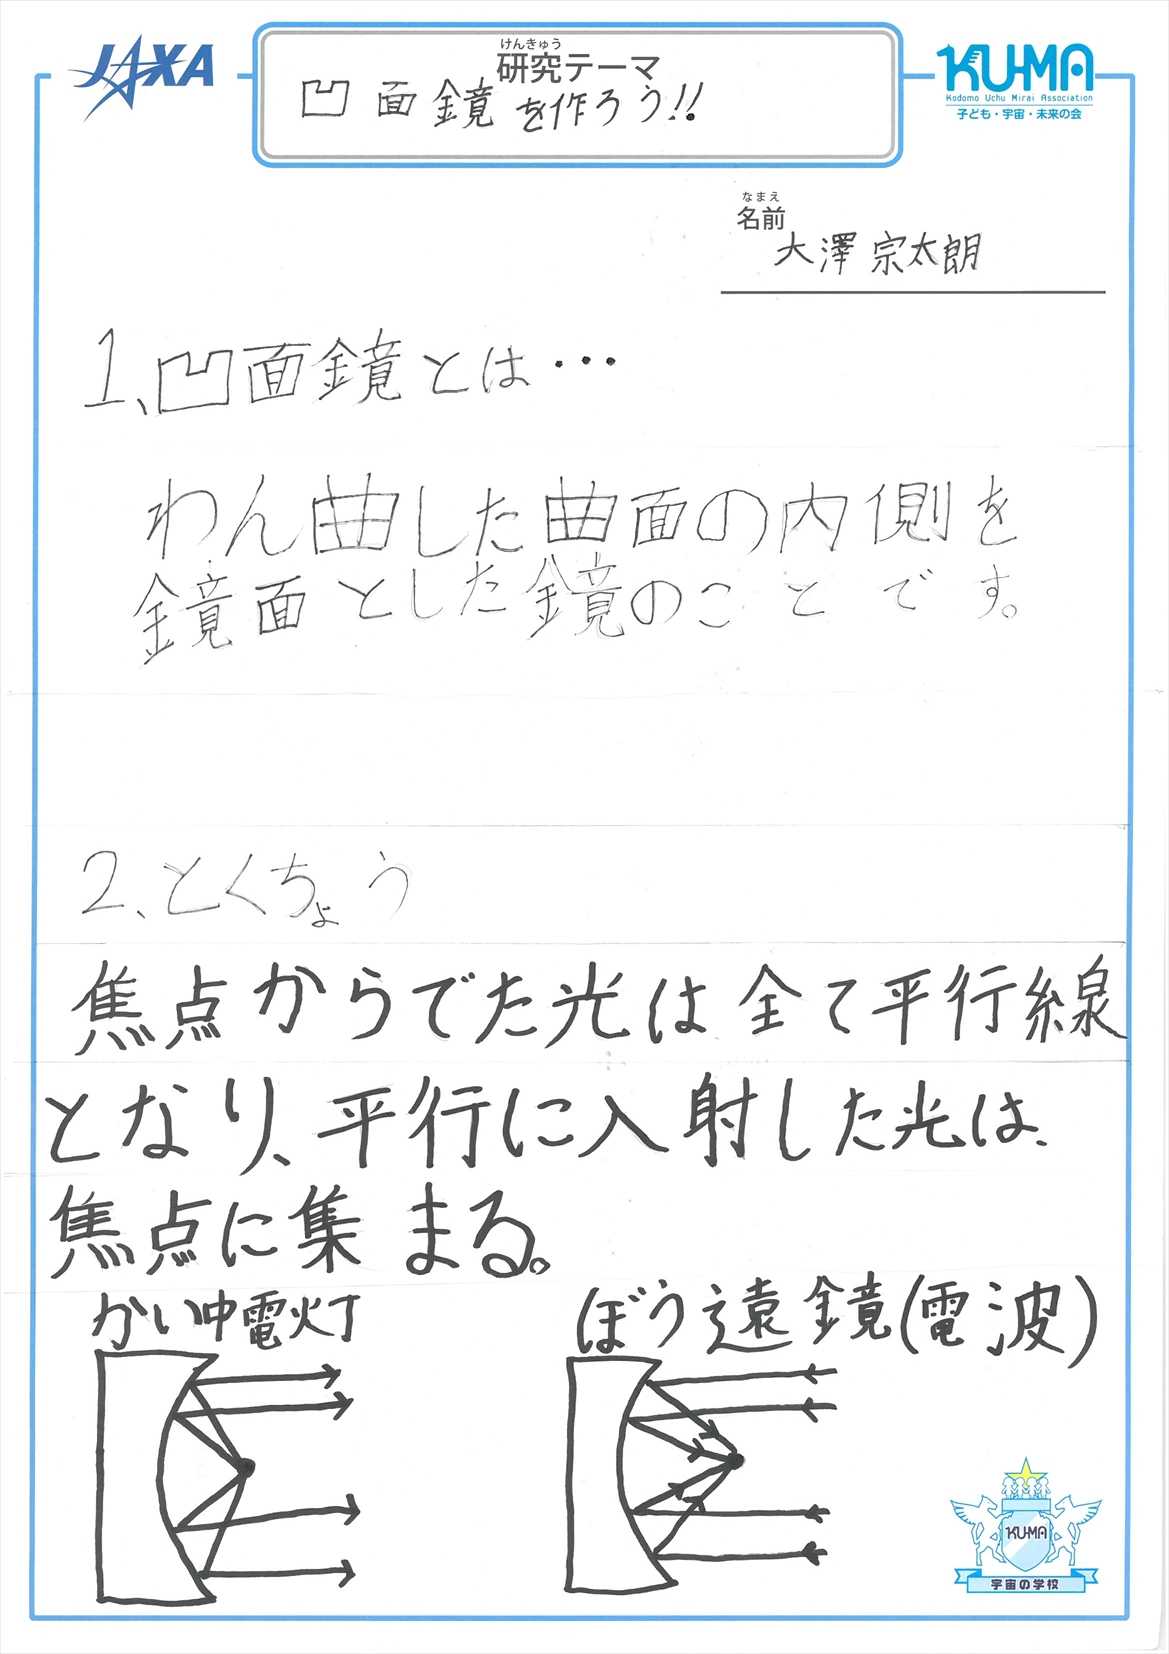 JAXA
けんきゅう
研究テーマ
凹面鏡を作ろう!!
KU-MA
Kodomo Uchu Mirai Association
子ども・宇宙・未来の会
なまえ
名前
大澤宗太朗
1、凹面鏡とは…
わん曲した曲面の内側を
鏡面とした鏡のことです。
2、とくちょう
焦点からでた光は全て平行線
となり、平行に入射した光は、
焦点に集まる。
かい中電灯
ぼう遠鏡(電波)
KU-MA
宇宙の学校